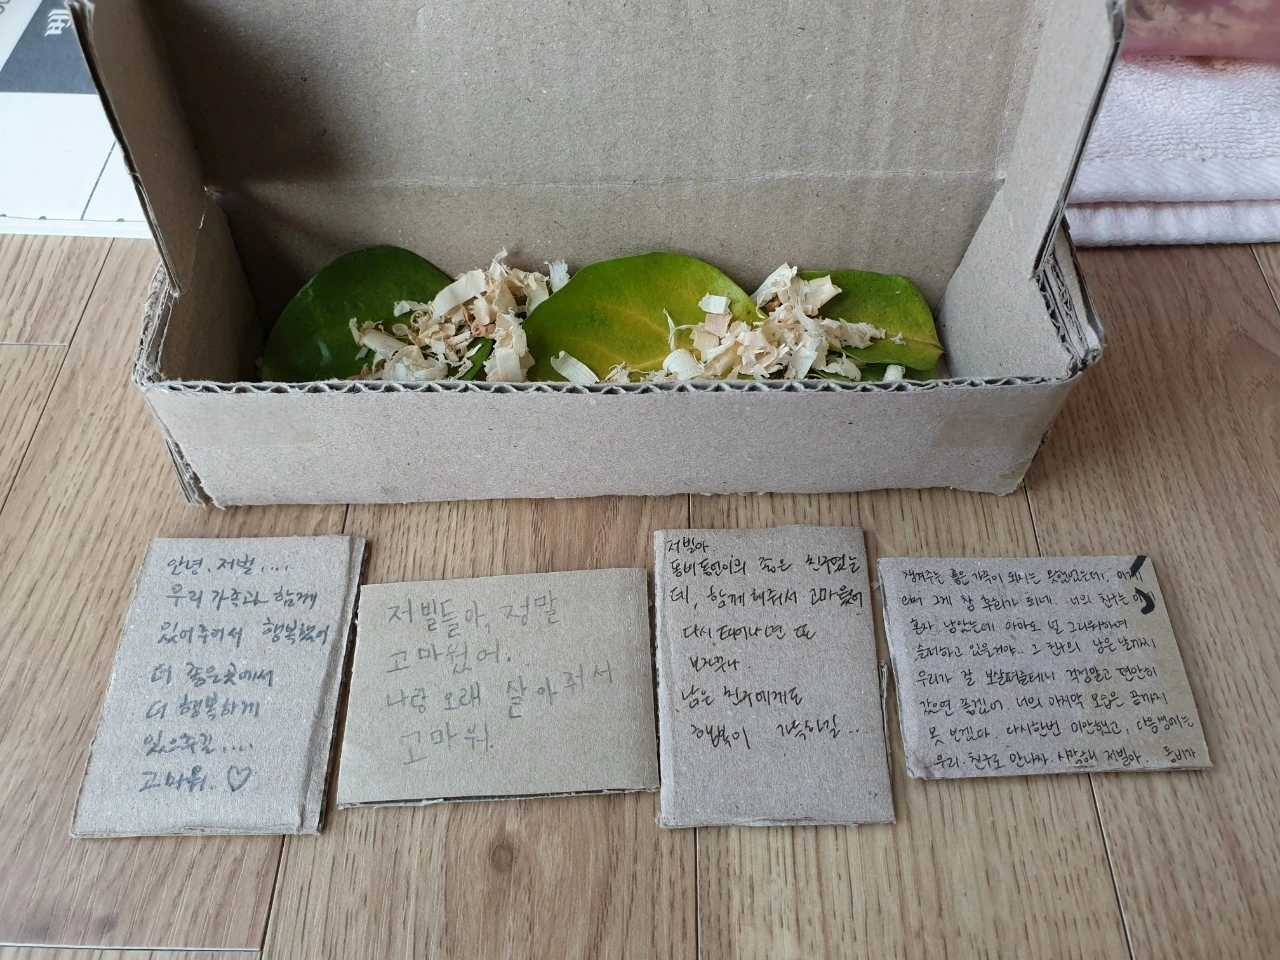 안녕. 저빌....
우리 가족과 함께
있어주어서 행복했어
더 좋은곳에서
더 행복하게
있으주길....
고마워. ♡
저빌들아, 정말
고마웠어.
나랑 오래 살아줘서
고마워.
저빌아.
동비동연이의 좋은 친구였는
데, 함께 해줘서 고마웠어
다시 태어나면 또
보자꾸나.
남은 친구에게도
행복이 가득하길...
챙겨주는 좋은 가족이 되지는 못했었는데,
그게 참 후회가 되네. 너의 친구는
혼자 남았는데 아마도 널 그리워하며
슬퍼하고 있을거야.. 그 친구의 남은 날까지
우리가 잘 보살펴줄테니 걱정말고 편안히
갔으면 좋겠어 너의 마지막 모습은 끝까지
못 보겠다. 다시한번 미안했고, 다음생에는
우리. 친구로 만나자. 사랑해 저빌아. 동비가